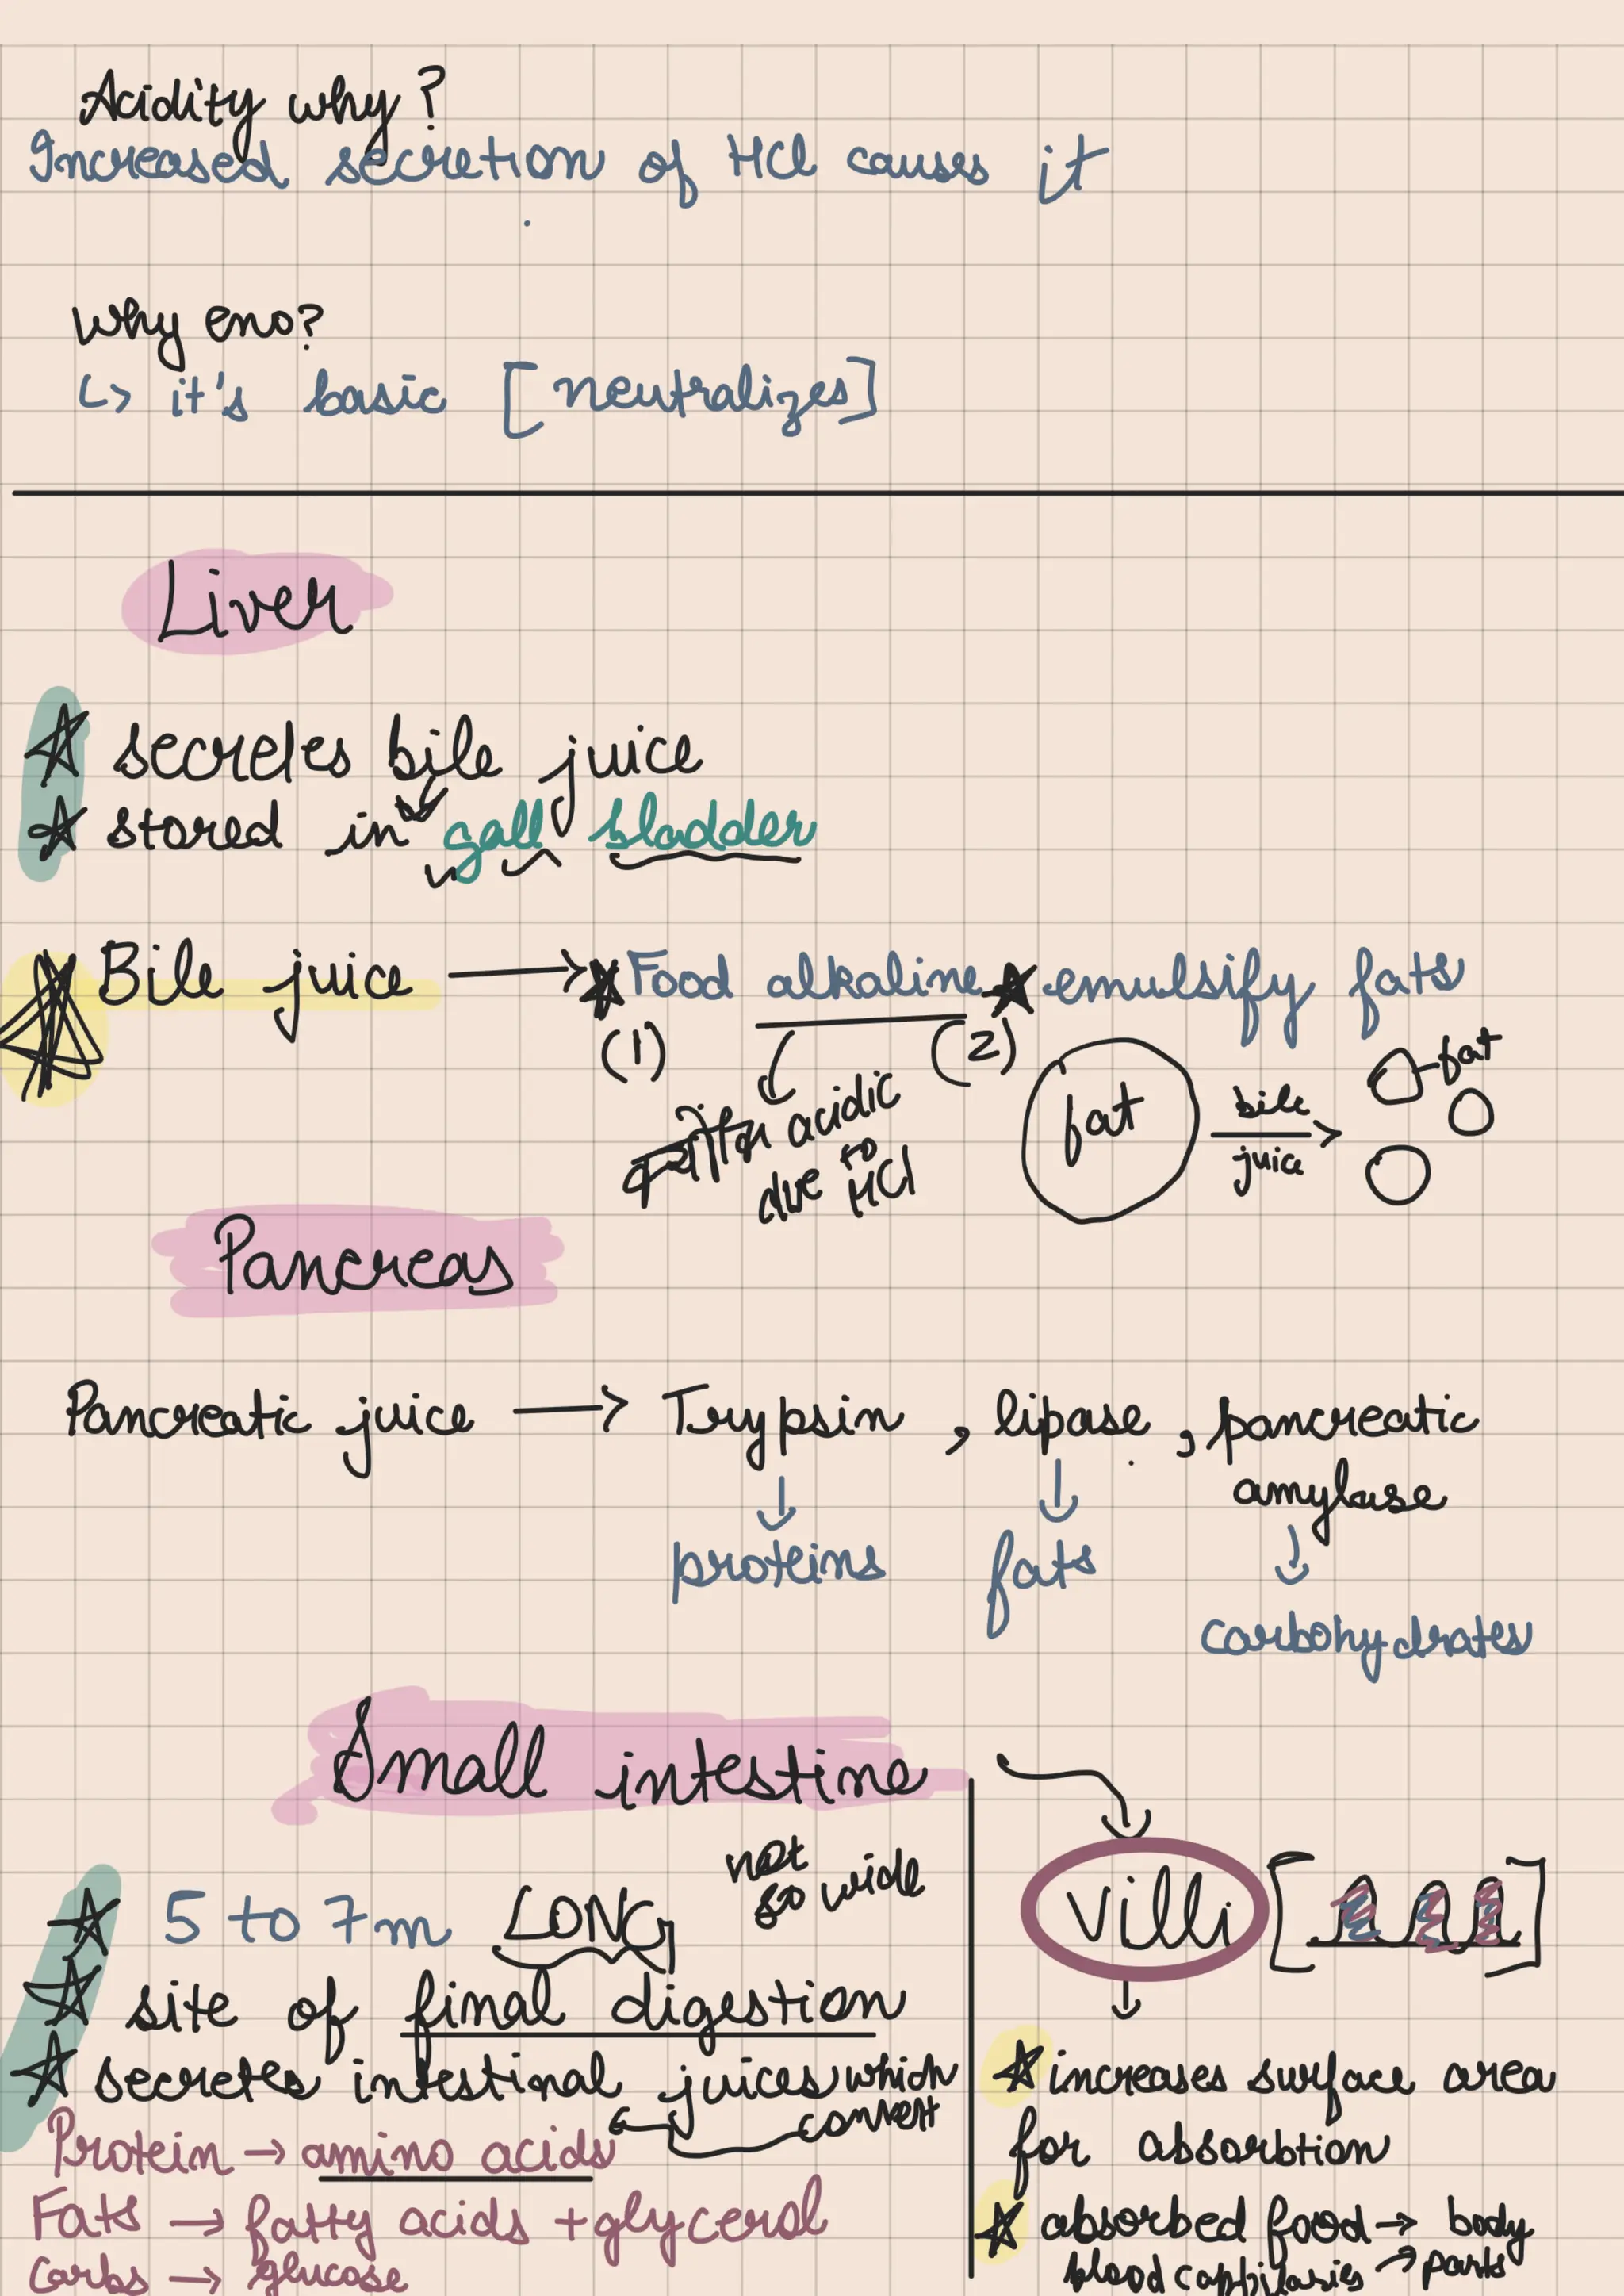 Acidity why?
Increased secretion of HCl causes it
why eno?
↳ it's basic [neutralizes]
Liver
☆ secretes bile juice
☆ stored in gall bladder
☆ Bile juice → ★ Food alkaline ★ emulsify fats
(1) (2)
acidic
due to
HCl
fat bile juice → fat
Pancreas
Pancreatic juice → Trypsin, lipase, pancreatic
amylase
↓ proteins ↓ fats
↓ carbohydrates
Small intestine
not
so wide
☆ 5 to 7m LONG
☆ site of final digestion
☆ secretes intestinal juices which
convert
Protein → amino acids
Fats → fatty acids + glycerol
Carbs → glucose
villi
↓
☆ increases surface area
for absorbtion
☆ absorbed food → body
blood capbilaries → parts